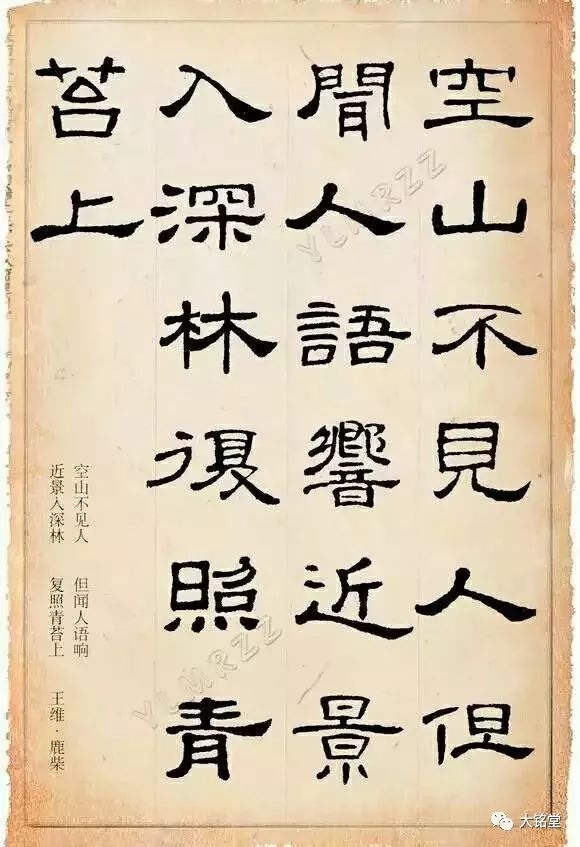 空山不見人但
聞人語響近景
入深林復照青
苔上
空山不见人 但闻人语响 王维·鹿柴
近景入深林 复照青苔上
YLMRZZ
YLMRZZ
大铭堂